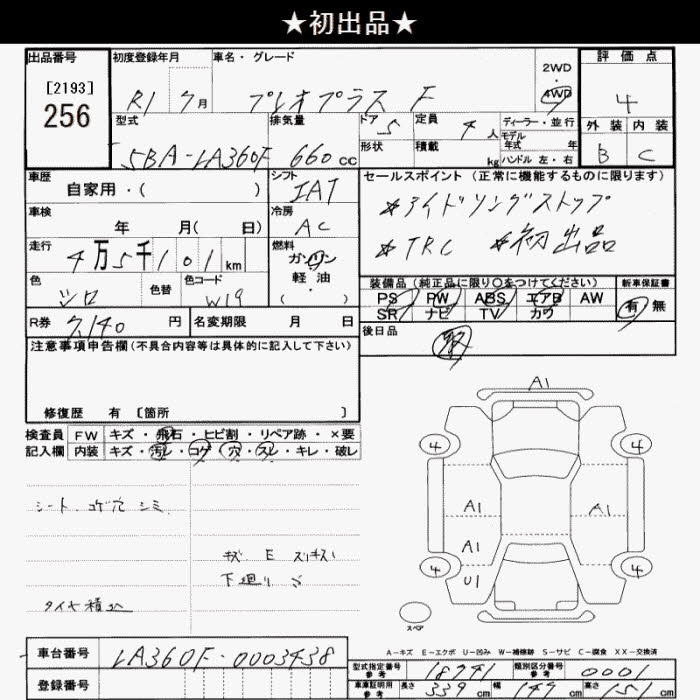 ★初出品★
出品番号 初度登録年月 車名・グレード 2WD 評価点
[2193] R1 7月 プレオプラス F 4WD 4
256 型式 排気量 ドア 5 定員 4人 ディーラー・並行 外装 内装
5BA-LA360F 660cc 形状 積載 kg モデル年式 年 B C
ハンドル 左・右
車歴 自家用・( ) シフト IAT セールスポイント (正常に機能するものに限ります)
車検 年 月( 日) 冷房 AC *アイドリングストップ
走行 4万5千101km 燃料 ガソリン 軽油 ( ・ ) *TRC *初出品
色 シロ 色替 色コード W19 装備品 (純正品に限り○をつけてください) 新車保証書
PS PW ABS エアB AW 有 無
R券 7,140円 名変期限 月 日 SR ナビ TV カワ
注意事項申告欄(不具合内容等は具体的に記入して下さい) 後日品
取
修復歴 有 [箇所 ]
検査員 FW キズ・飛石・ヒビ割・リペア跡・×要
記入欄 内装 キズ・汚レ・コゲ・穴・スレ・キレ・破レ
A1
4 4
シート コゲ穴 シミ
A1 A1
A1
キズ E スリキズ
4 U1 4
下廻り S
タイヤ積込
スペア
A-キズ E-エクボ U-凹み W-補修跡 S-サビ C-腐食 XX-交換済
車台番号 LA360F-0003438
型式指定番号 参考 18741 類別区分番号 参考 0001
登録番号 車庫証明用 参考 長さ 339cm 幅 cm 高さ cm